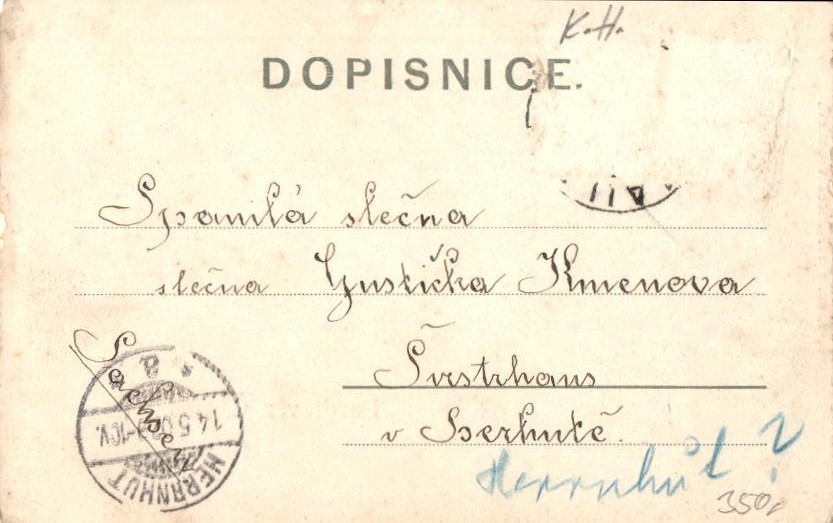 K.H.
DOPISNICE.
Spanilá slečna
slečna Gustička Kmenova
Švstrhaus
v Herhutě.
Sachsen
14.5.0 9-10V.
HERRNHUT
Herrnhut ?
350,